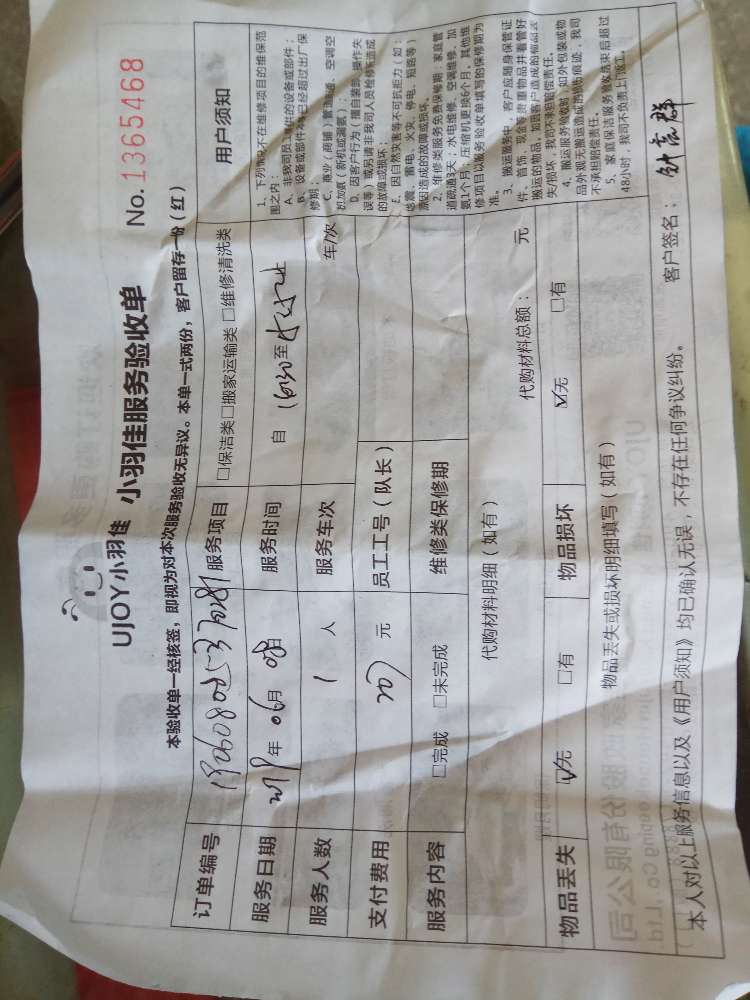 UJOY小羽佳 小羽佳服务验收单 No. 1365468
本验收单一经核签，即视为对本次服务验收无异议。本单一式两份，客户留存一份（红）
订单编号 服务项目 □保洁类□搬家运输类 □维修清洗类
服务日期 2019年06月08日 服务时间 自 16:30至
服务人数 1 人 服务车次 车/次
支付费用 207 元 员工工号（队长）
服务内容 □完成 □未完成 维修类保修期
代购材料明细（如有） 代购材料总额： 元
物品丢失 ☑无 □有 物品损坏 ☑无 □有
物品丢失或损坏明细填写（如有）
用户须知
1、下列情况不在维修项目的维保范
围之内：
A、非我司员工提供的设备或部件；
B、设备或部件本身已经超过出厂保
修期；
C、商业（商铺）管道疏通、空调空
机加氨（新机或漏氨）；
D、因客户行为（擅自装卸、操作失
误等）或另请非我司人员检修而造成
的故障或损坏；
E、因自然灾害等不可抗拒力（如：
地震、雷电、火灾、停电、短路等）
原因造成的故障或损坏。
2、维修类服务免费保修期：家庭管
道疏通3天；水电维修、空调维修、加
氨1个月，压缩机更换6个月，其他维
修项目以服务验收单填写的保修期为
准。
3、搬运服务中，客户应随身保管证
件、首饰、现金等贵重物品并看管好
搬运的物品，如因客户造成的物品丢
失/损坏，我司不承担赔偿责任。
4、搬运服务验收时，如外包装或物
品外观无搬运造成的损伤痕迹，我司
不承担赔偿责任。
5、家庭保洁服务验收结束后超过
48小时，我司不负责上门返工。
本人对以上服务信息以及《用户须知》均已确认无误，不存在任何争议纠纷。 客户签名：